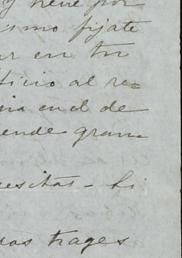 y tiene por
ismo fijate
ar en tu
ticio al re-
nia en el de
ende gran-
cesitas - Si
das trages